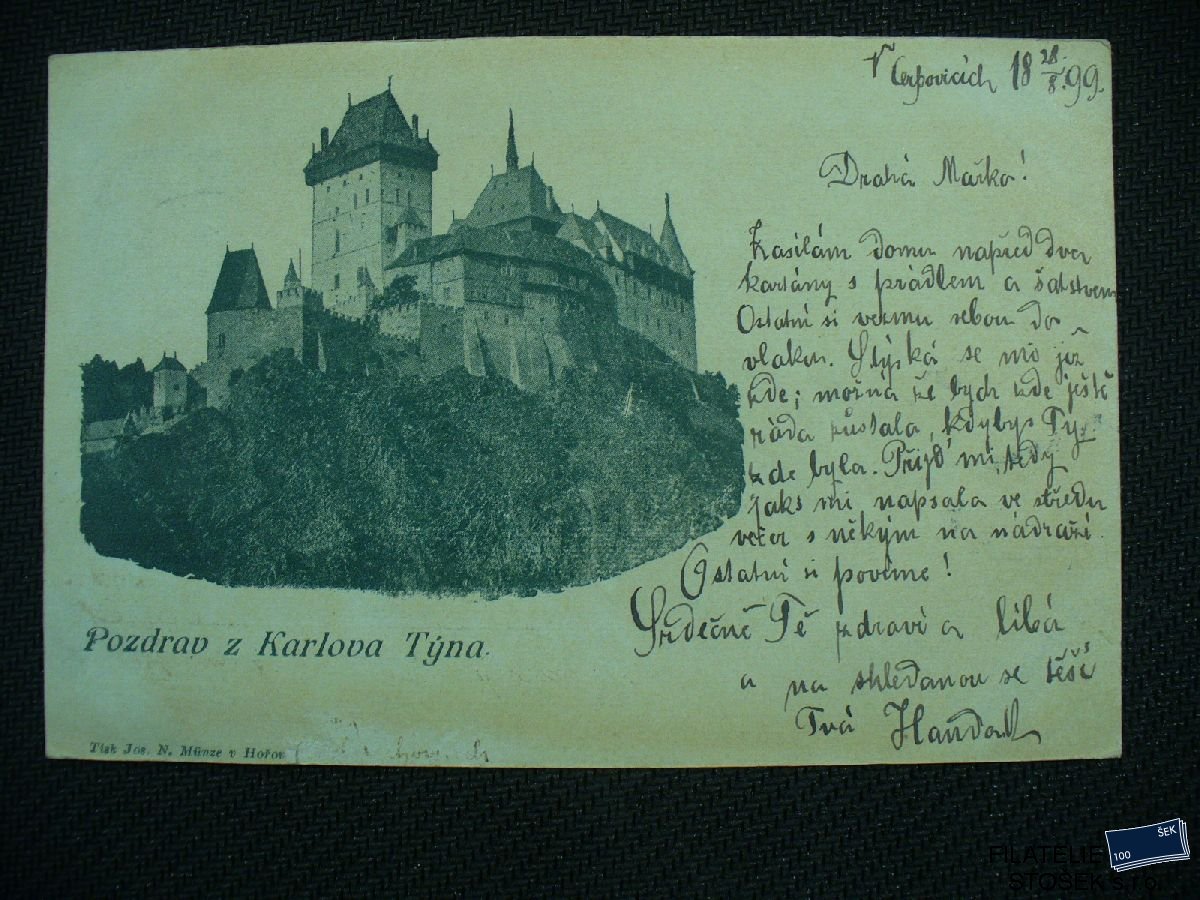 V Cerhovicích 18 28/8. 99.
Drahá Mařko!
Zasílám domu napřed dva
kartány s prádlem a šatstvem
Ostatní si vezmu sebou do
vlaku. Stýská se mi již
zde; možná že bych zde ještě
ráda zůstala, kdybys Ty
zde byla. Přijď mi, tedy
jaks mi napsala ve středu
večer s někým na nádraží.
Ostatní si povíme!
Srdečně Tě zdraví a líbá
a na shledanou se těší
Tvá
Pozdrav z Karlova Týna.
Tisk Jos. N. Münze v Hořov
FILATELIE
STOSEK s.r.o.
100
ŠEK